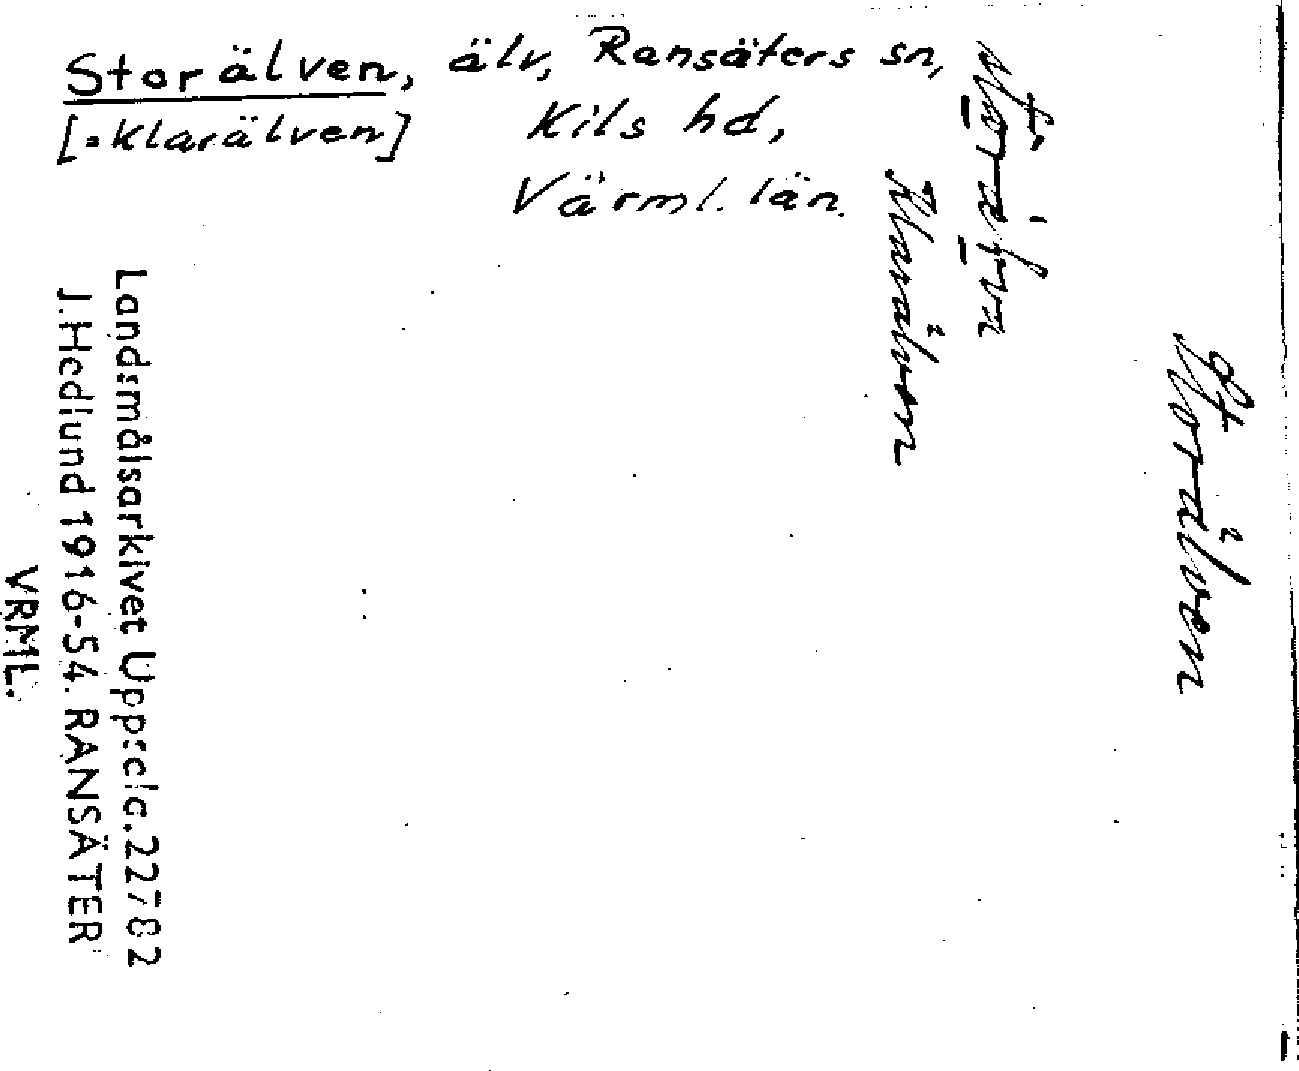 Storälven, älv, Ransäters sn,
[=Klarälven] Kils hd,
Värml. län.
Storälven
Klarälven
Landsmålsarkivet Upps:c!c.22782
J.Hedlund 1916-54. RANSÄTER
VRML.